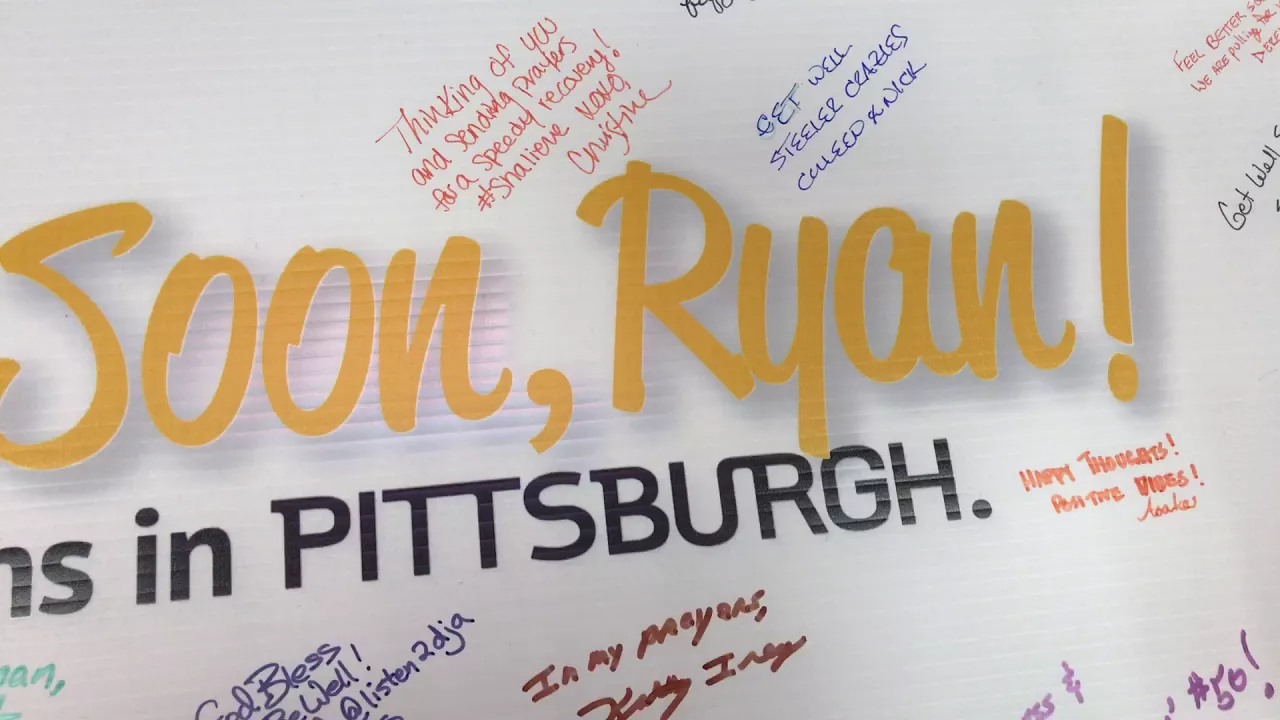 Thinking of you
and sending prayers
for a speedy recovery!
#Shalieve xoxo
Christine
GET WELL
STEELER CRAZIES
COLLEED & NICK
FEEL BETTER
WE ARE pulling for
Get Well
Soon, Ryan!
ns in PITTSBURGH.
HAPPY THOUGHTS!
POSITIVE VIBES!
God Bless
Be Well!
@listen2dja
In my prayers,
ess &
#50!